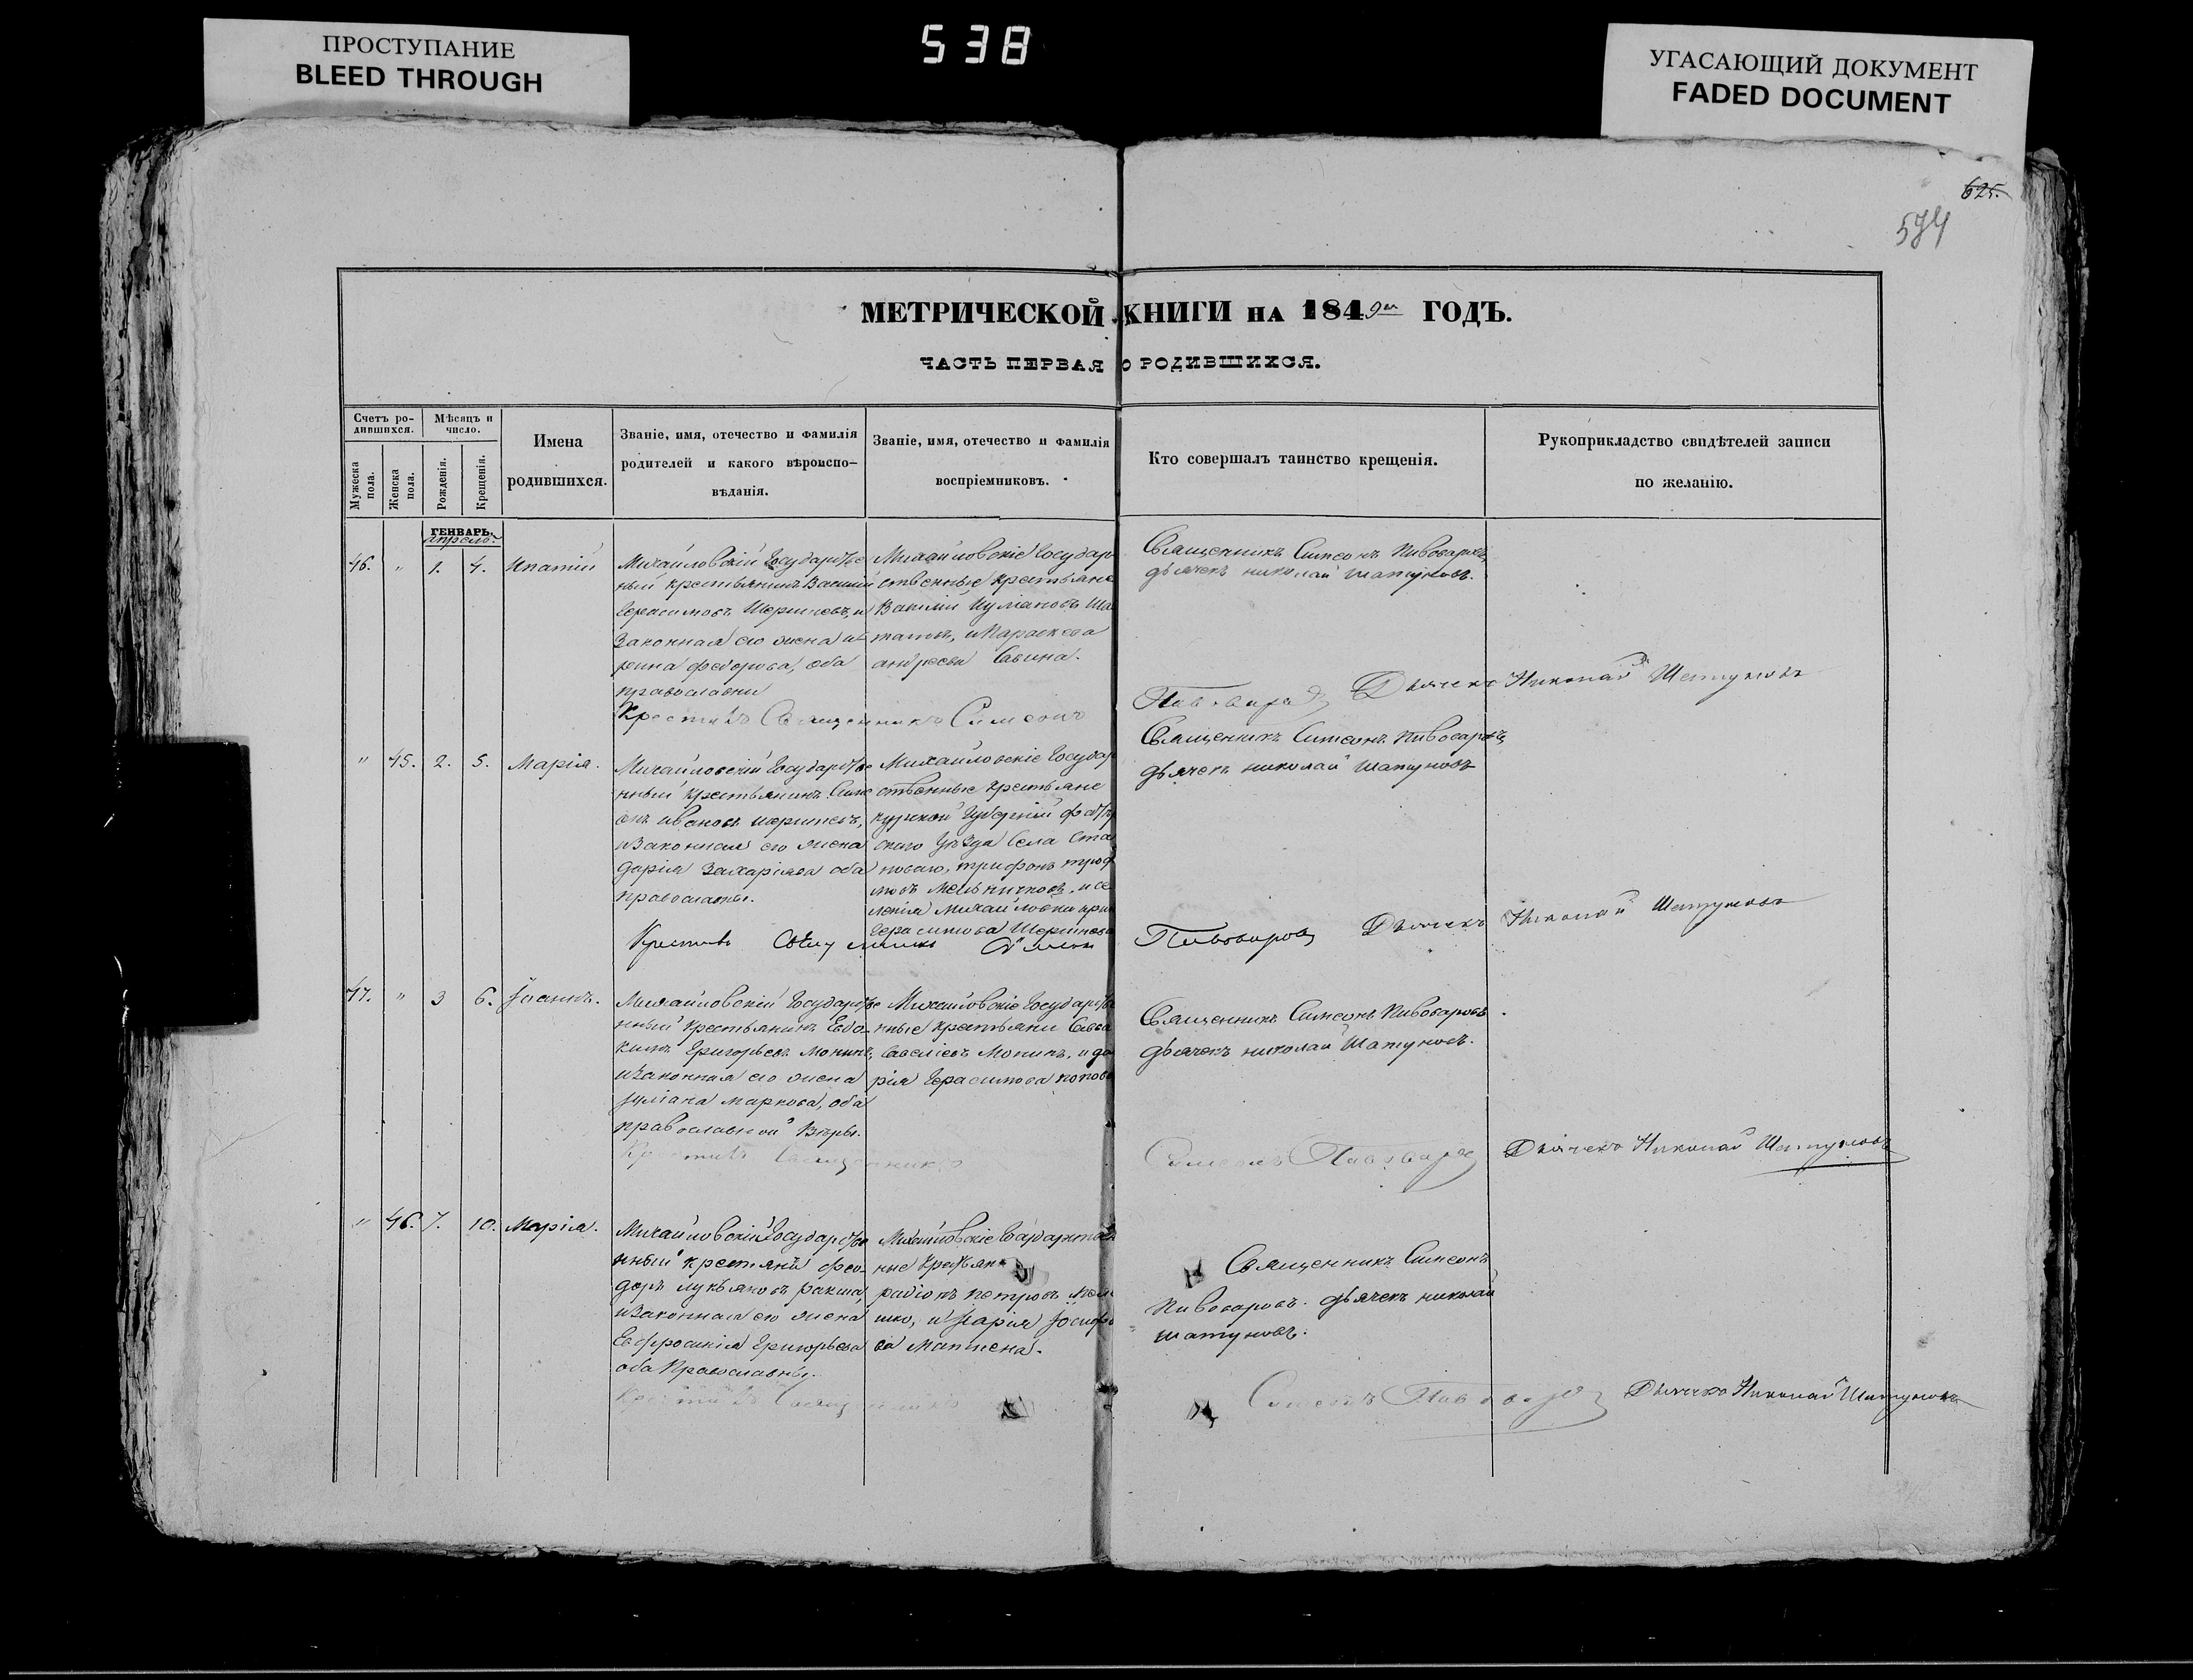 ПРОСТУПАНИЕ
BLEED THROUGH
538
УГАСАЮЩИЙ ДОКУМЕНТ
FADED DOCUMENT
625.
574
МЕТРИЧЕСКОЙ КНИГИ НА 1849й ГОДЪ.
ЧАСТЬ ПЕРВАЯ О РОДИВШИХСЯ.
Счетъ ро-
дившихся.
Мужеска пола.
Женска пола.
Мѣсяцъ и
число.
Рожденія.
Крещенія.
Имена
родившихся.
Званіе, имя, отечество и фамилія
родителей и какого вѣроиспо-
вѣданія.
Званіе, имя, отечество и фамилія
воспріемниковъ.
Кто совершалъ таинство крещенія.
Рукоприкладство свидѣтелей записи
по желанію.
ГЕНВАРЬ.
апрель.
46. " 1. 4. Ипатій
Михайловскій Государстве
ный крестьянинъ Василій
Герасимовъ и
Законная его жена
Федорова, оба
православни
Михайловскіе Государ
ственные крестьяне
Василій
и Параскева
андреева Савина.
Священникъ Симеонъ Пивоваровъ,
дьячекъ николай Шатуновъ.
Крестилъ Священникъ Симеонъ Пивоваровъ Дьячекъ Николай Шатуновъ
" 45. 2. 5. Марія.
Михайловскій Государстве
нный крестьянинъ Симе
онъ ивановъ
и Законная его жена
дарія Захаріева оба
православны.
Михайловскіе Государ
ственные крестьяне
курской Губерніи
скаго уѣзда Села
трифонъ
и се
ленія Михайловки
Герасимова
Священникъ Симеонъ Пивоваровъ,
дьячекъ николай Шатуновъ
Крестилъ Священникъ Симеонъ Пивоваровъ Дьячекъ Николай Шатуновъ
47. " 3 6. Іоаннъ.
Михайловскій Государстве
нный крестьянинъ Евдо
кимъ Григорьевъ Мокинъ,
и Законная его жена
Іуліана маркова, оба
православной Вѣры.
Михайловскіе Государстве
нные крестьяни Савва
Савеліевъ Мокинъ, и да
рія Герасимова попова
Священникъ Симеонъ Пивоваровъ
дьячекъ николай Шатуновъ.
Крестилъ Священникъ Симеонъ Пивоваровъ Дьячекъ Николай Шатуновъ
" 46. 7. 10. Марія.
Михайловскій Государстве
нный крестянинъ Фео
доръ лукьяновъ ракша,
и Законная его жена
Евфросинія Григорьева
оба Православны.
Михайловскіе
ные
петровъ
и Марія Іосифо
ва
Священникъ Симеонъ
Пивоваровъ. дьячекъ николай
шатуновъ.
Крестилъ Священникъ Симеонъ Пивоваровъ Дьячекъ Николай Шатуновъ